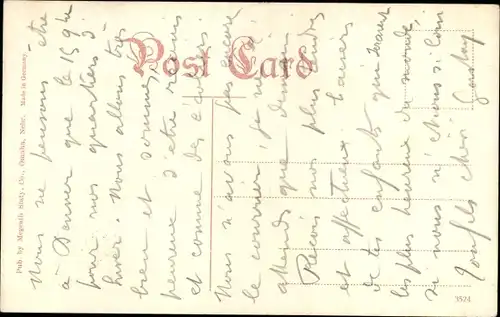 Post Card
Pub. by Megeath Stat'y, Co., Omaha, Nebr. Made in Germany.
3524
Nous ne pensons être
à Denver que le 15 9bre
pour nos quartiers d'
hiver. Nous allons très
bien et sommes
heureux d'être réunis
et comme des
Nous n'avons pas encore
le courrier, je ne
attends que demain
Reçois nos plus tendres
et affectueux baisers
de tes enfants qui seraient
les plus heureux du monde,
si nous n'étions si loin